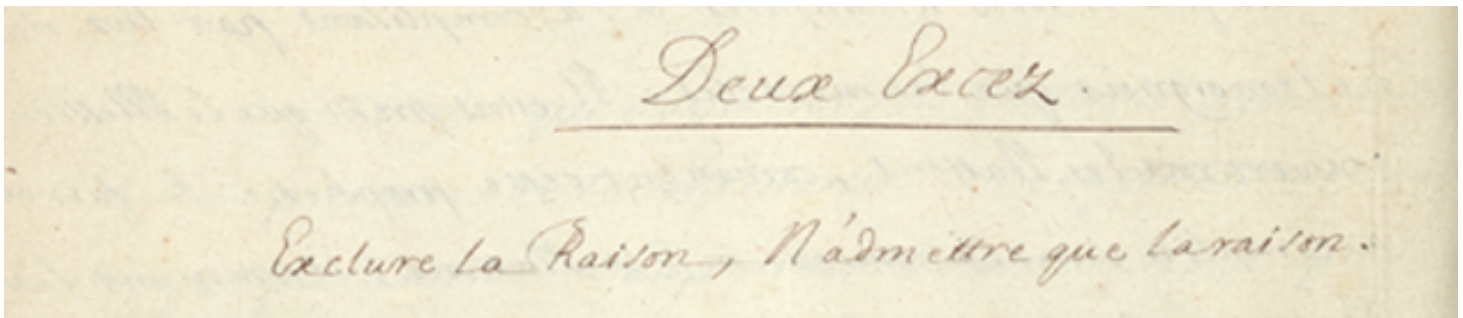 Deux Excez
Exclure la Raison, N'admettre que la raison.